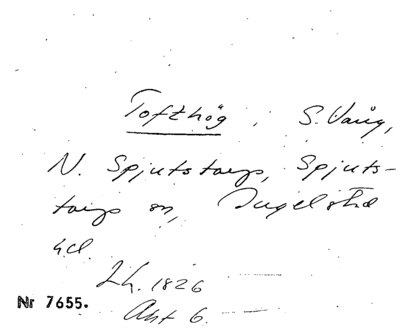 Tofthög, S. Vång,
N. Spjutstorp, Spjuts-
torps sn, Ingelstad
hd.
Lh. 1826
Akt 6.
Nr 7655.